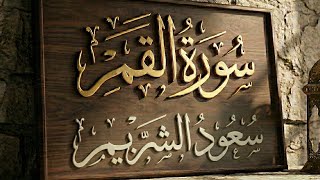 سُورَةُ القَمَرِ
سُعُودُ الشُّرَيْمِ